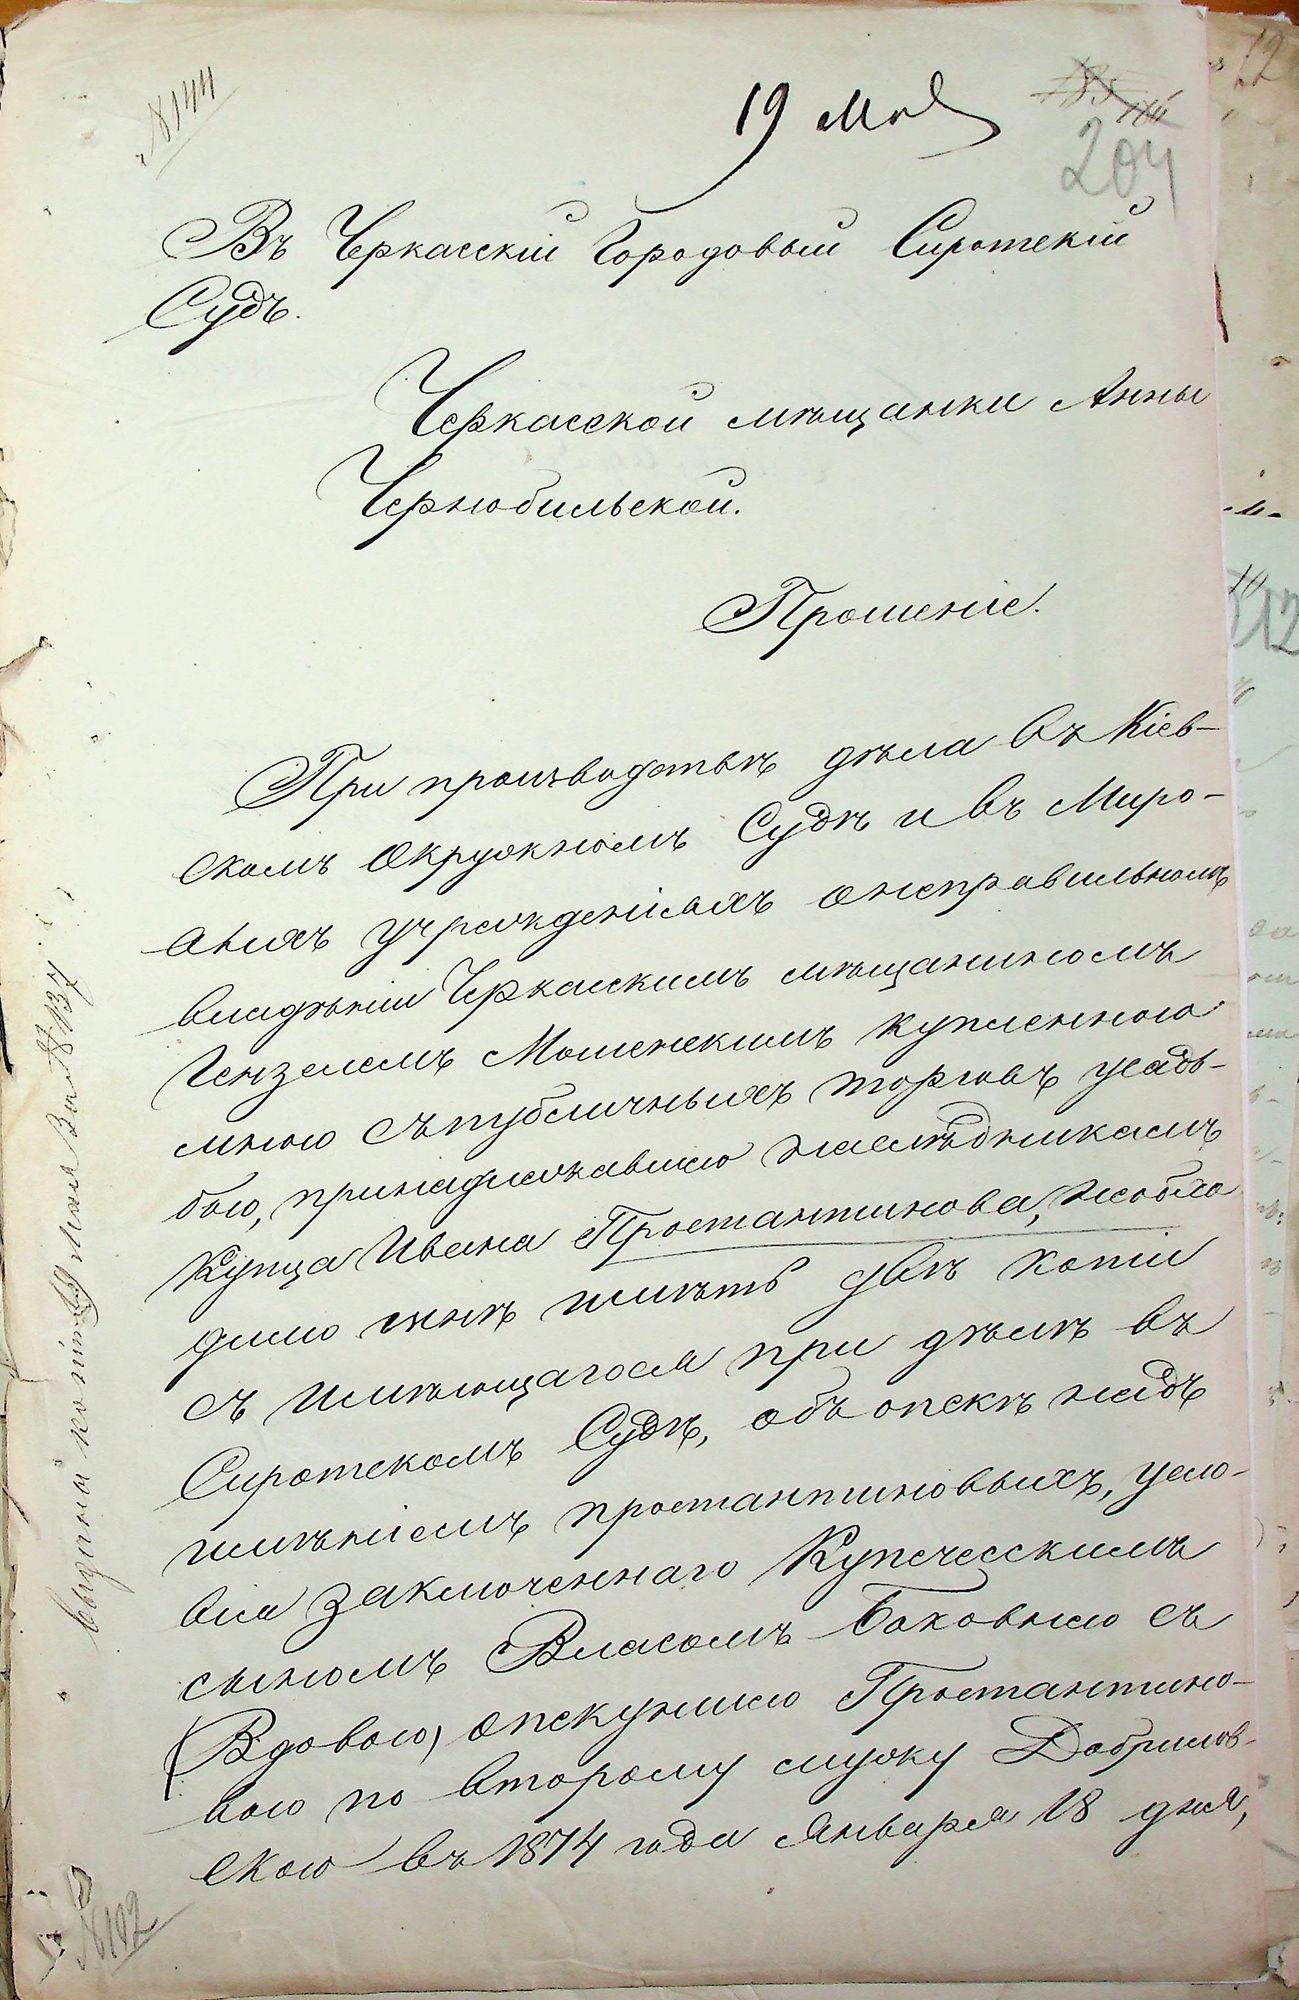 № 144
19 Мая
185
186
204
Въ Черкасскій Городовый Сиротскій
Судъ.
Черкасской мѣщанки Анны
Чернобильской.
Прошеніе.
При производствѣ дѣла въ Кіев-
скомъ Окружномъ Судѣ и въ Миро-
выхъ учрежденіяхъ о неправильномъ
владѣніи Черкасскимъ мѣщаниномъ
Гензелемъ Мошенскимъ купленною
мною съ публичныхъ торговъ усадь-
бою, принадлежавшею наслѣдникамъ
Купца Ивана Простантинова, необхо
димо мнѣ имѣть двѣ копіи
съ имѣющагося при дѣлѣ въ
Сиротскомъ Судѣ, объ опекѣ надъ
имѣніемъ простантиновыхъ, усло-
вія заключеннаго Купеческимъ
сыномъ Власомъ Баковымъ съ
(Вдовою) опекуншею Простантино-
вою по второму мужу Добрилов-
скою въ 1874 года Января 18 дня,
выданы копіи 19 мая за № 137
№ 102